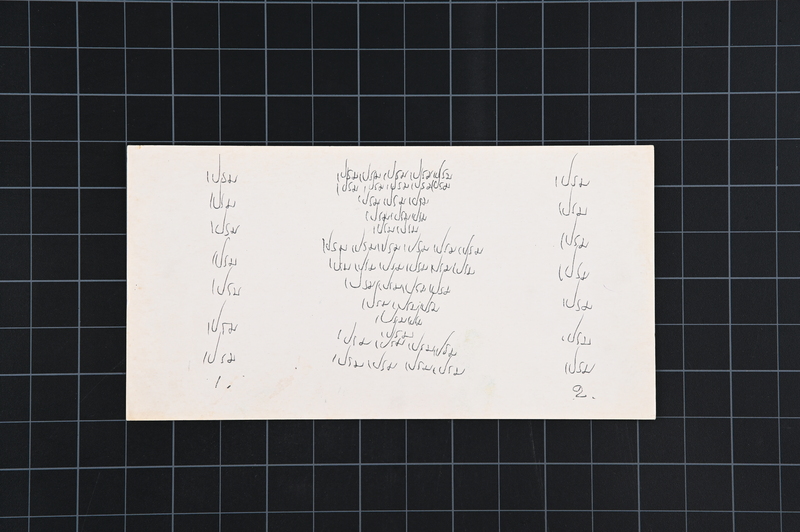 เปรม
เปรม
เปรม
เปรม
เปรม
เปรม
เปรม
1.
เปรมเปรมเปรมเปรมเปรม
เปรม เปรมเปรมเปรมเปรม
เปรมเปรมเปรม
เปรมเปรมเปรม
เปรมเปรม
เปรม เปรมเปรม เปรม เปรม เปรม
เปรม เปรม เปรม เปรมเปรมเปรม
เปรมเปรมเปรมเปรม
เปรม เปรมเปรม
เปรมเปรม
เปรม
เปรม เปรม เปรมเปรม
เปรม เปรม เปรม เปรม
เปรม
เปรม
เปรม
เปรม
เปรม
เปรม
เปรม
2.